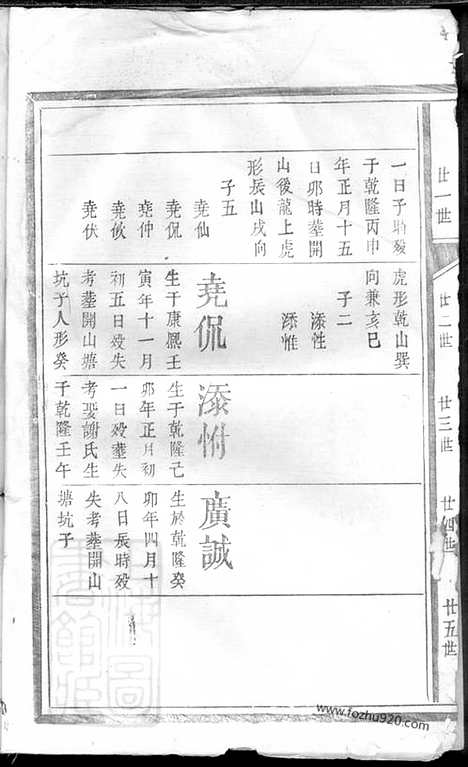 廿一世
廿二世
廿三世
廿四世
廿五世
一日子時歿
于乾隆丙申
年正月十五
日卯時葬開
山後龍上虎
形辰山戌向
子五
堯仙
堯侃
堯仲
堯伙
堯伏
虎形乾山巽
向兼亥巳
子二
添性
添惟
堯侃
生于康熙壬
寅年十一月
初五日歿失
考葬開山塘
坑子人形癸
添怈
生于乾隆己
卯年正月初
一日歿葬失
考娶謝氏生
于乾隆壬午
廣誠
生於乾隆癸
卯年四月十
八日辰時歿
失考葬開山
塘坑子
www.fozhu920.com